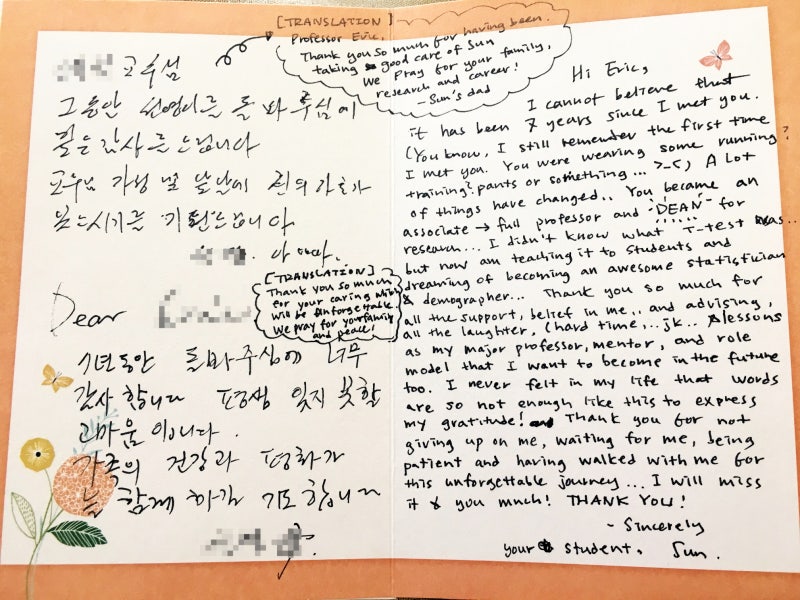 교수님
그동안 선영이를 돌봐주심에
깊은 감사를 드립니다
교수님 가정 및 앞날에 신의 가호가
있으시기를 기원드립니다
아빠가.
[TRANSLATION]
Professor Eric,
Thank you so much for having been
taking good care of Sun
We pray for your family,
research and career!
- Sun's dad
Dear
[TRANSLATION]
Thank you so much
for your caring which
will be unforgettable.
We pray for your family
and peace!
7년동안 돌봐주심에 너무
감사합니다 평생 잊지 못할
고마움 이니다.
가족의 건강과 평화가
늘 함께 하길 기도합니다
Hi Eric,
I cannot believe that
it has been 7 years since I met you.
(You know, I still remember the first time
I met you. You were wearing some running?
training? pants or something... >_<) A Lot
of things have changed.. You became an
associate → full professor and "DEAN" for
research... I didn't know what T-test was..
but now am teaching it to students and
dreaming of becoming an awesome statistician
& demographer... Thank you so much for
all the support, belief in me,, and advising,
all the laughter, (hard time,..jk.. & lessons
as my major professor, mentor, and role
model that I want to become in the future
too. I never felt in my life that words
are so not enough like this to express
my gratitude! Thank you for not
giving up on me, waiting for me, being
patient and having walked with me for
this unforgettable journey... I will miss
it & you much! THANK YOU!
- Sincerely
your student, Sun.